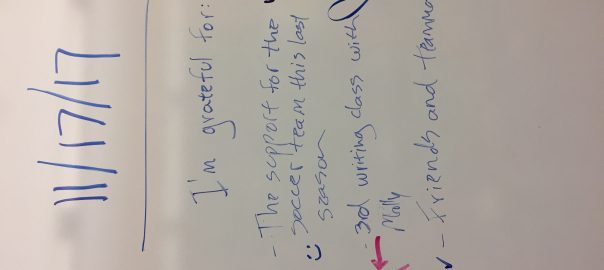 11/17/17
I'm grateful for:
- The support for the
soccer team this last
season
- 3rd writing class with
Molly
- Friends and teamma